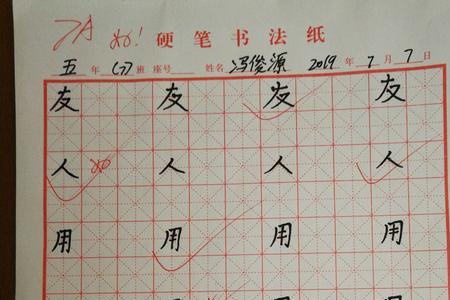 7A 好! 硬笔书法纸
五年(7)班 座号 姓名 冯俊源 2019年7月7日
友 友 友 友
人 好 人 人 人
用 用 用 用